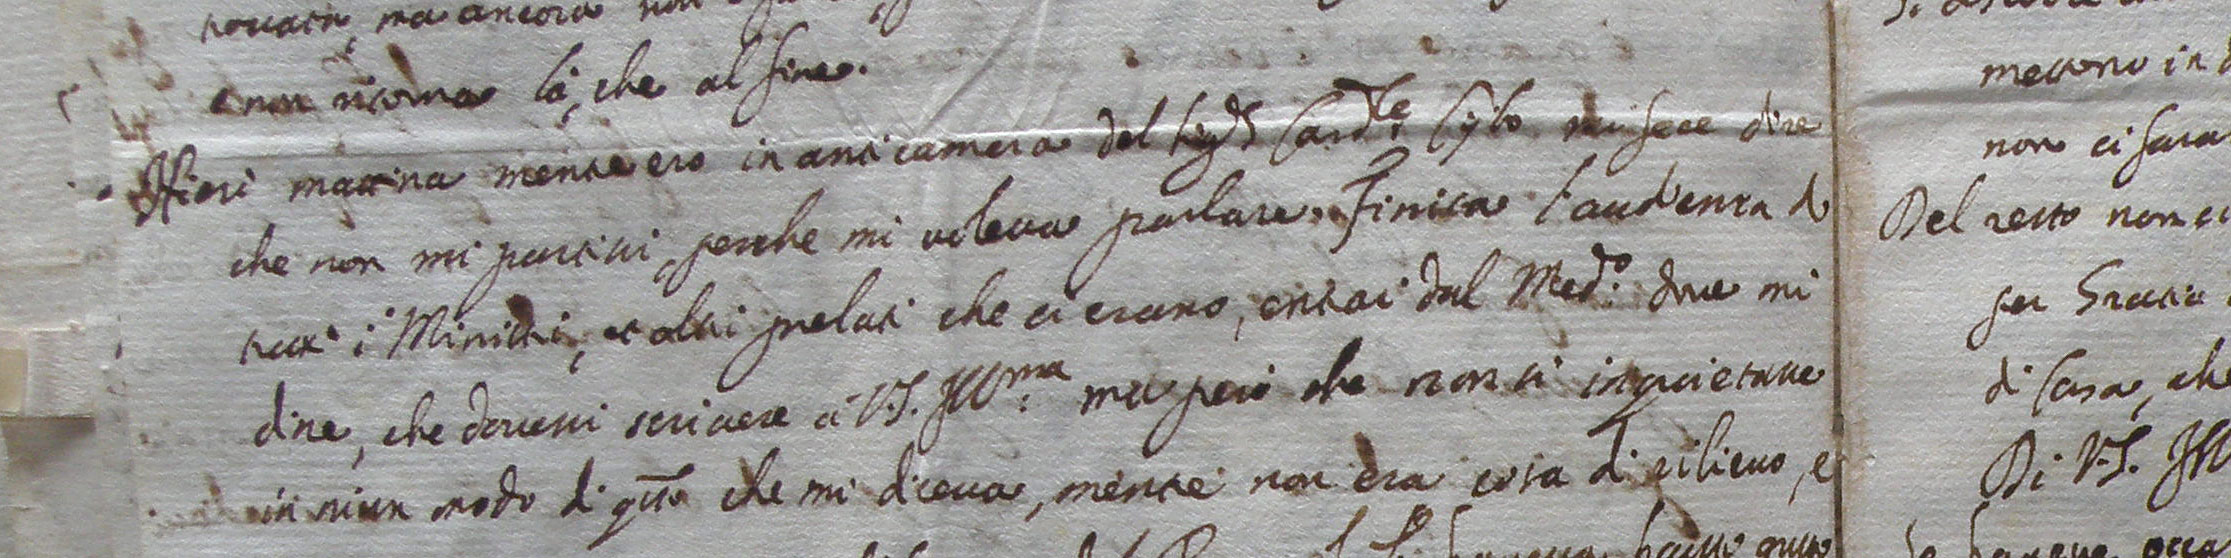 ma ancora non
e non ritorna là, che al fine.
Hieri mattina mentre ero in anticamera del Sig.r Card.le Cybo mi fece dire
che non mi partissi, perche mi voleva parlare. Finita l'audienza di
tutti i Ministri, et altri prelati che ci erano, entrai dal Med.o dove mi
dire, che dovessi scrivere à V.S. Ill.ma ma però che non si inquietasse
in niun modo di q.to che mi diceva, mentre non era cosa di rilievo, e
mettono in
non ci sara
Del resto non
per Gratia
di Casa, che
Di V.S. Ill